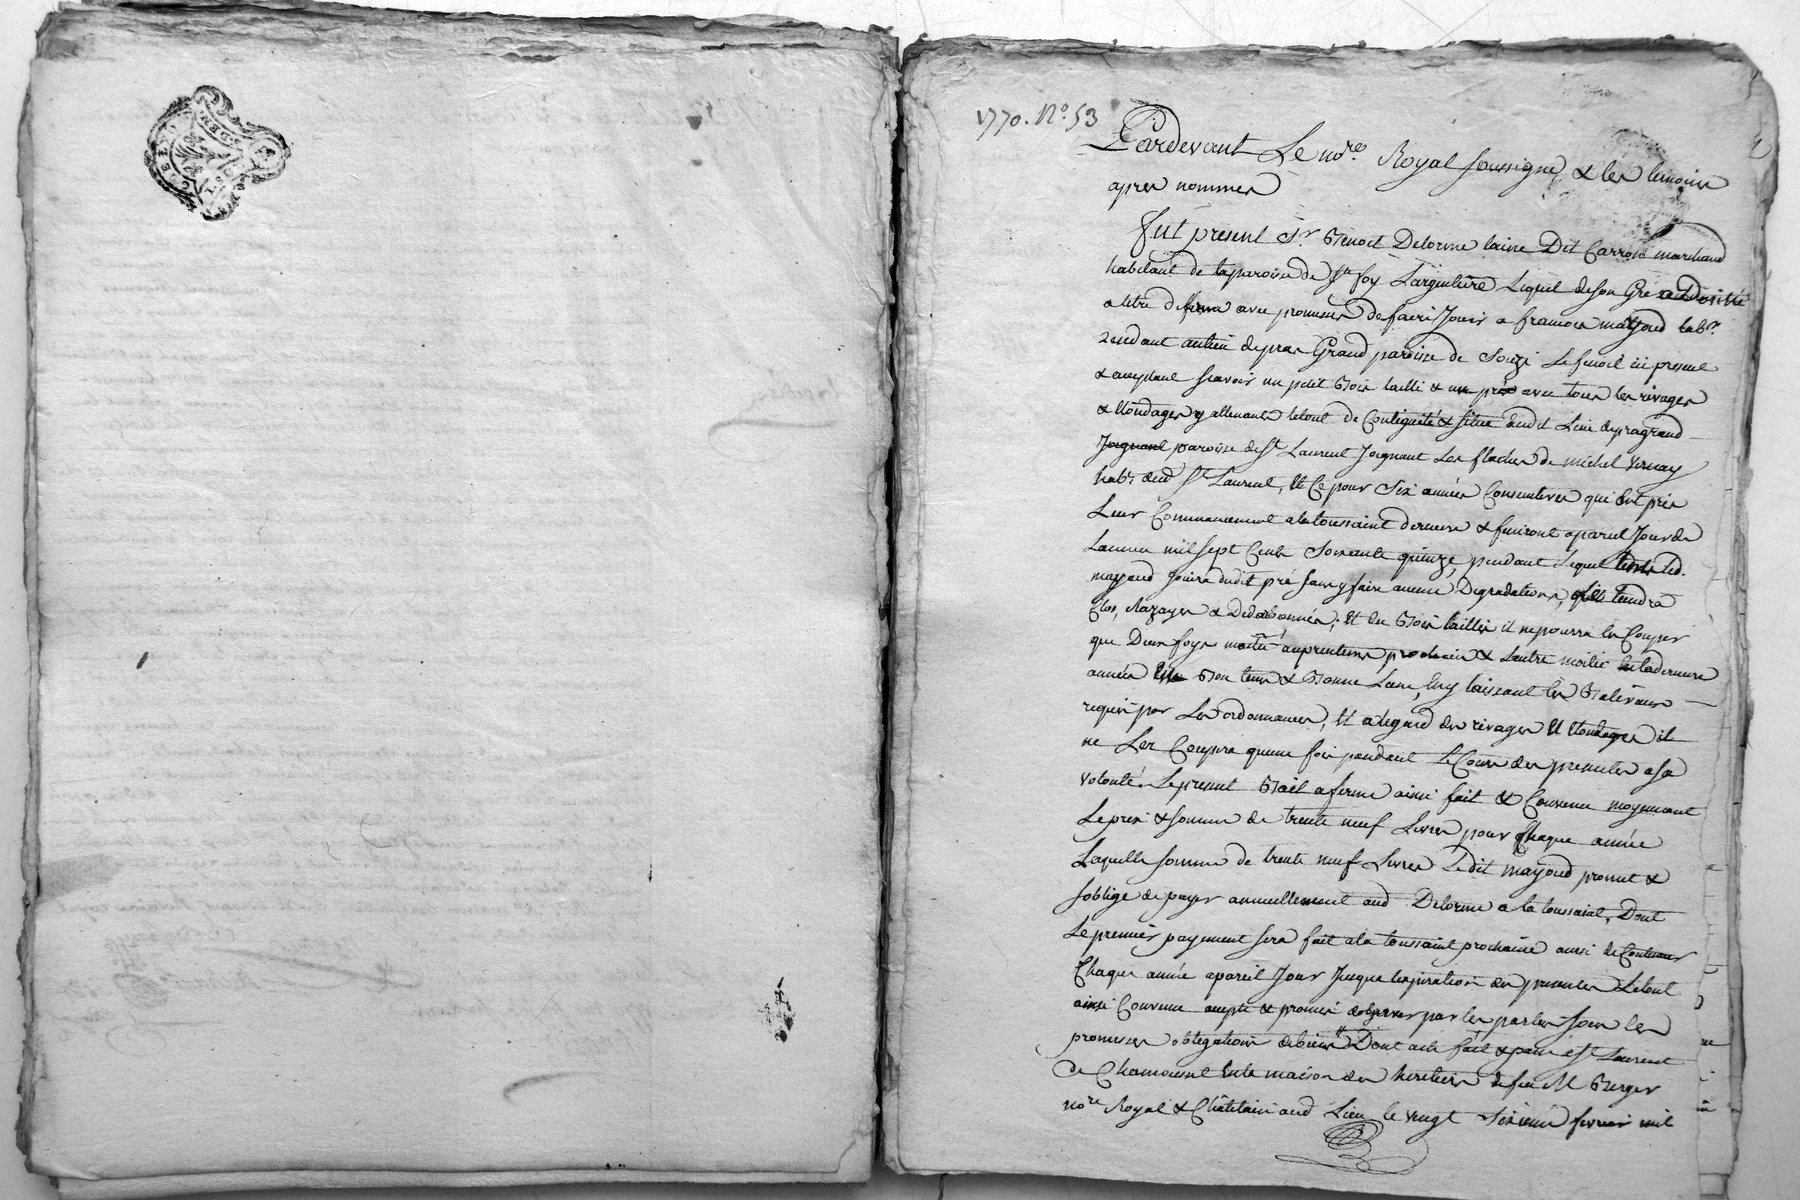 1770. N°. 53
Pardevant Le no.re Royal soussigné, & les temoins
apres nommes
fut present Sr. Benoit Delorme laine Dit Carron marchand
habitant de la paroisse de Ste foy Largentiere Lequel de son Gré
a titre de ferme avec promesse de faire Jouir a francois mayoud hab.n
Residant au lieu de pras Grand paroisse de Souzi Le fenoil ici present
& aceptant scavoir un petit Bois taillis & un pré avec tous les rivages
& Blondages y attenants letout de Contiguité & Situé audit Lieu depragrand
Joignant paroisse de St Laurent Joignant Les flaches de michel vernay
hab.t dud. St Laurent, Et Ce pour Six années Consecutives qui ont pris
Leur Commencement a la toussaint derniere & finiront a pareil Jour de
Lannée mil sept Cents Soixante quinze, pendant Lequel tems led.
mayoud Jouira dudit pré sans y faire aucune Degradations, tiendra
Clos, Razayes & ; Et du Bois taillis il ne pourra les Couper
que Deux foys moitié au printems prochain & Lautre moitié la derniere
année Bon tems & Bonne Lune, luy laissant les Baliveaux
requis par Les ordonnances, Et a legard des rivages Et Blondages il
ne Les Coupera quune fois pendant Le Cours des presentes a sa
volonté. Le present Bail a ferme ainsi fait & Convenu moyennant
Le prix & somme de trente neuf Livres pour Chaque année
Laquelle somme de trente neuf Livres Ledit mayoud promet &
soblige de payer annuellement aud. Delorme a la toussaint, Dont
Le premier payement sera fait a la toussaint prochaine ainsi de Continuer
Chaque année a pareil Jour Jusque lexpiration des presentes Letout
ainsi Convenu accepté & promis dobserver par les parties sous les
promesses obligations de biens Dont acte fait & passé a St Laurent
de Chamousset En la maison des heritiers de feu M Berger
no.re Royal & Châtelain aud. Lieu le vingt Sixieme fevrier mil